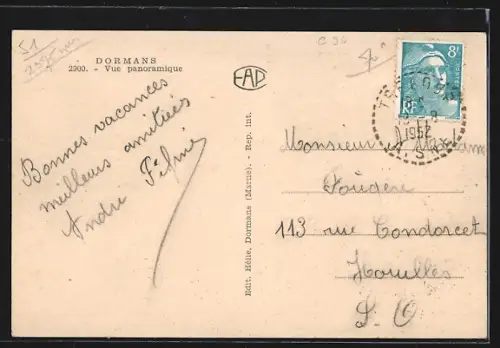 51
DORMANS
2300. - Vue panoramique
EAD
8F
RF
1952
Bonnes vacances
meilleurs amitiés
André
Edit. Hélie, Dormans (Marne). - Rep. Int.
Monsieur et
Fougère
113 rue Condorcet
Houilles
S. O